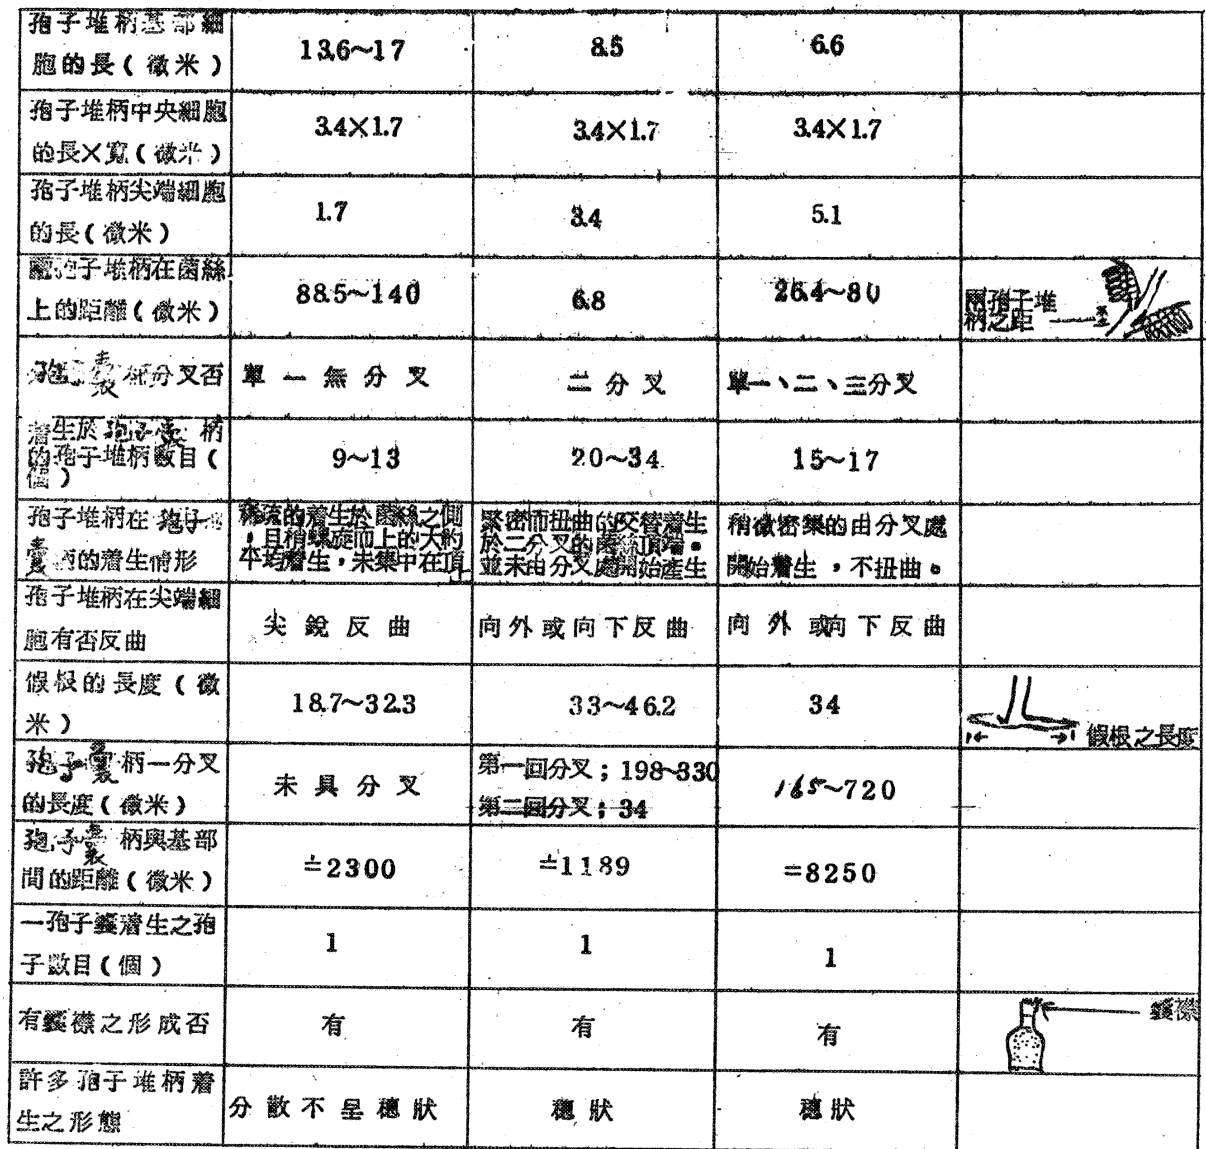 孢子堆柄基部細
胞的長(微米)
13.6~17
8.5
6.6
孢子堆柄中央細胞
的長×寬(微米)
3.4×1.7
3.4×1.7
3.4×1.7
孢子堆柄尖端細胞
的長(微米)
1.7
3.4
5.1
兩孢子堆柄在菌絲
上的距離(微米)
88.5~140
6.8
26.4~80
兩孢子堆
柄之距
孢子囊柄分叉否
單一無分叉
二分叉
單一、二、三分叉
着生於孢子囊柄
的孢子堆柄數目(
個)
9~13
20~34
15~17
孢子堆柄在孢子
囊柄的着生情形
稀疏的着生於菌絲之側
,且稍螺旋而上的大約
平均着生,未集中在頂
緊密而扭曲的交替着生
於二分叉的菌絲頂端。
並未由分叉處開始產生
稍微密集的由分叉處
開始着生,不扭曲。
孢子堆柄在尖端細
胞有否反曲
尖銳反曲
向外或向下反曲
向外或向下反曲
假根的長度(微
米)
18.7~32.3
33~46.2
34
假根之長度
孢子囊柄一分叉
的長度(微米)
未具分叉
第一回分叉;198~330
第二回分叉;34
165~720
孢子囊柄與基部
間的距離(微米)
≐2300
≐1189
=8250
一孢子囊着生之孢
子數目(個)
1
1
1
有囊襟之形成否
有
有
有
囊襟
許多孢子堆柄着
生之形態
分散不呈穗狀
穗狀
穗狀